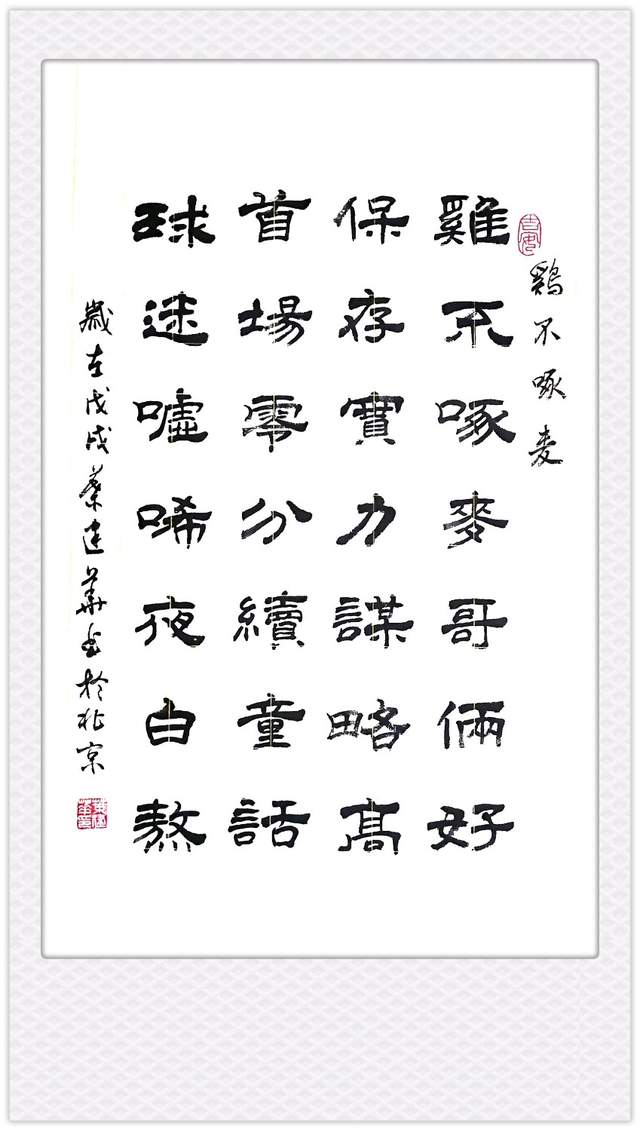 鷄不啄麦
雞不啄麥哥倆好
保存實力謀略高
首場零分續童話
球迷噓唏夜白熬
歲在戊戌蔡建華書於北京